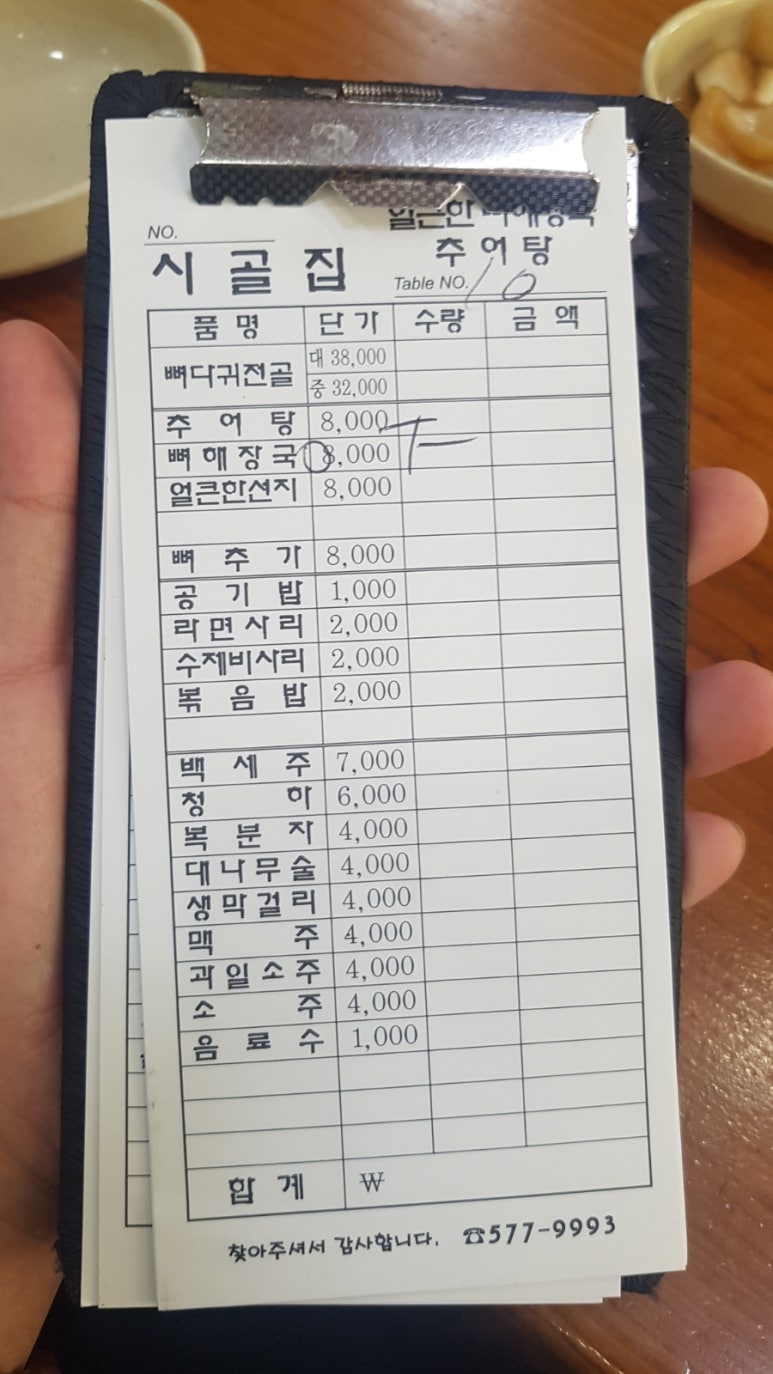 NO.
얼큰한 뼈해장국
시 골 집
추 어 탕
Table NO. 10
품 명 단 가 수량 금 액
뼈다귀전골 대 38,000
중 32,000
추 어 탕 8,000
뼈 해 장 국 8,000
얼큰한선지 8,000
뼈 추 가 8,000
공 기 밥 1,000
라 면 사 리 2,000
수제비사리 2,000
볶 음 밥 2,000
백 세 주 7,000
청 하 6,000
복 분 자 4,000
대 나 무 술 4,000
생 막 걸 리 4,000
맥 주 4,000
과 일 소 주 4,000
소 주 4,000
음 료 수 1,000
합 계 ₩
찾아주셔서 감사합니다. ☎577-9993